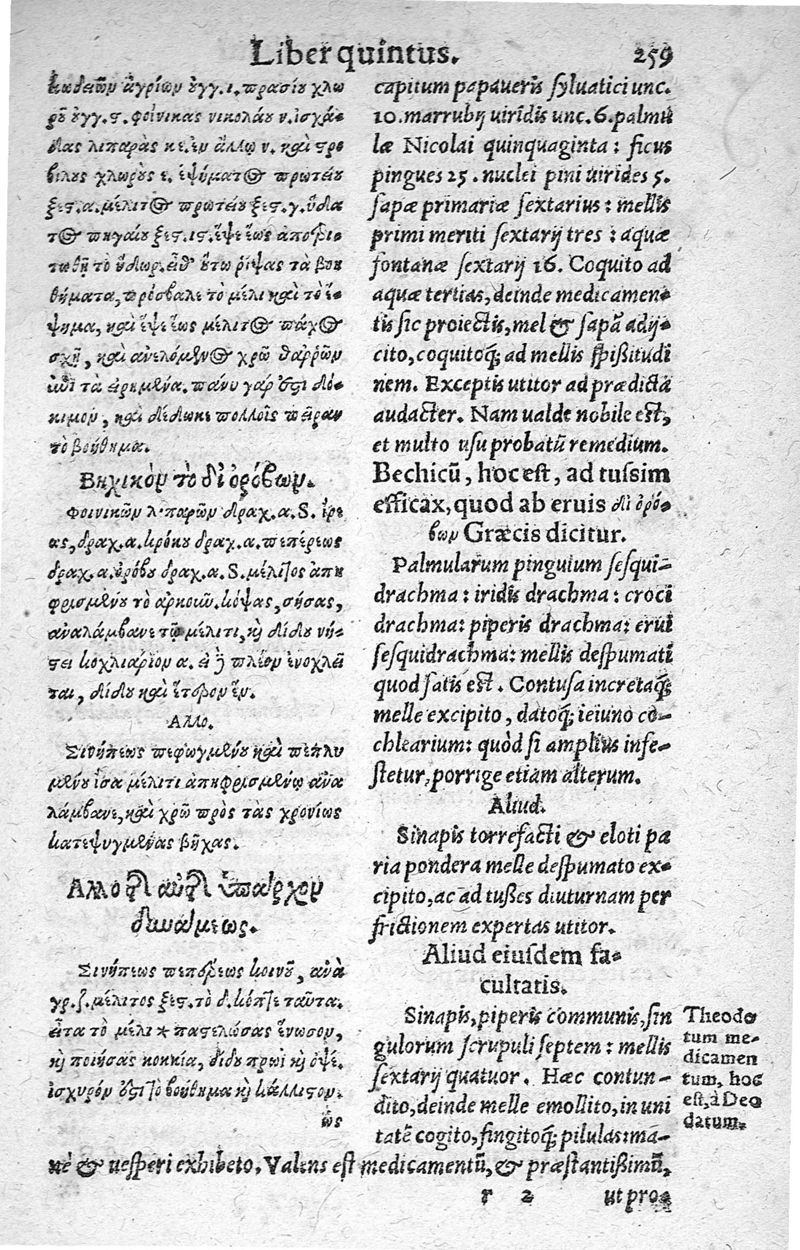 Liber quintus. 259
κωδειῶν ἀγρίων ουγγ. ι. πρασίου χλω
ροῦ ουγγ. ς. φοίνικας νικολάου ν. ἰσχά-
δας λιπαρὰς κε. ἐν ἄλλῳ ν. καὶ στρο
βίλους χλωροὺς ε. ἑψήματος πρωτείου
ξες. α. μέλιτος πρωτείου ξες. γ. ὕδα
τος πηγαίου ξες. ις. ἕψε ἕως ἀποτρι-
τωθῇ τὸ ὕδωρ. εἶθ' οὕτω ῥίψας τὰ βοη
θήματα, πρόσβαλε τὸ μέλι καὶ τὸ ἕ-
ψημα, καὶ ἕψε ἕως μέλιτος πάχος
σχῇ, καὶ ἀνελόμενος χρῶ θαρρῶν
ἐπὶ τὰ εἰρημένα. πάνυ γάρ ἐστι δό-
κιμον, καὶ δέδωκε πολλοῖς πεῖραν
τὸ βοήθημα.
Βηχικὸν τὸ δι' ὀρόβων.
Φοινίκων λιπαρῶν δραχ. α. S. ἴρε
ως, δραχ. α. κρόκου δραχ. α. πεπέρεως
δραχ. α. ὀρόβου δραχ. α. S. μέλιτος ἀπη
φρισμένου τὸ ἀρκοῦν. κόψας, σήσας,
ἀναλάμβανε τῷ μέλιτι, καὶ δίδου νή-
στει κοχλιάριον α. εἰ δὲ πλέον ἐνοχλεῖ
ται, δίδου καὶ ἕτερον ἕν.
Αλλο.
Σινήπεως πεφωγμένου καὶ πεπλυ
μένου ἴσα μέλιτι ἀπηφρισμένῳ ἀνα
λάμβανε, καὶ χρῶ πρὸς τὰς χρονίως
κατεψυγμένας βῆχας.
Αλλο τῆς αὐτῆς ὑπάρχον
δυνάμεως.
Σινήπεως πεπέρεως κοινοῦ, ἀνὰ
γρ. ζ. μέλιτος ξες. τὸ δ. κόπτε ταῦτα.
εἶτα τὸ μέλι * παστελώσας ἕνωσον,
καὶ ποιήσας κοκκία, δίδου πρωῒ καὶ ὀψέ.
ἰσχυρόν ἐστι τὸ βοήθημα καὶ κάλλιστον.
ὡς
capitum papaueris syluatici unc.
10. marrubij uiridis unc. 6. palmu
læ Nicolai quinquaginta: ficus
pingues 25. nuclei pini uirides 5.
sapæ primariæ sextarius: mellis
primi meriti sextarij tres: aquæ
fontanæ sextarij 16. Coquito ad
aquæ tertias, deinde medicamen-
tis sic proiectis, mel & sapā adij-
cito, coquitoq; ad mellis spissitudi
nem. Exceptis utitor ad prædicta
audacter. Nam ualde nobile est,
et multo usu probatū remedium.
Bechicū, hoc est, ad tussim
efficax, quod ab eruis δι' ὀρό-
βων Græcis dicitur.
Palmularum pinguium sesqui-
drachma: iridis drachma: croci
drachma: piperis drachma: erui
sesquidrachma: mellis despumati
quod satis est. Contusa incretaq;
melle excipito, datoq; ieiuno co-
chlearium: quòd si amplius infe-
stetur, porrige etiam alterum.
Aliud.
Sinapis torrefacti & eloti pa
ria pondera melle despumato ex-
cipito, ac ad tusses diuturnam per
frictionem expertas utitor.
Aliud eiusdem fa-
cultatis.
Sinapis, piperis communis, sin
gulorum scrupuli septem: mellis
sextarij quatuor. Hæc contun-
dito, deinde melle emollito, in uni
tatē cogito, fingitoq; pilulas: ma-
nè & uesperi exhibeto. Valens est medicamentū, & præstantissimū,
Theodo
tum me-
dicamen
tum, hoc
est, à Deo
datum.
r 2 ut pro-